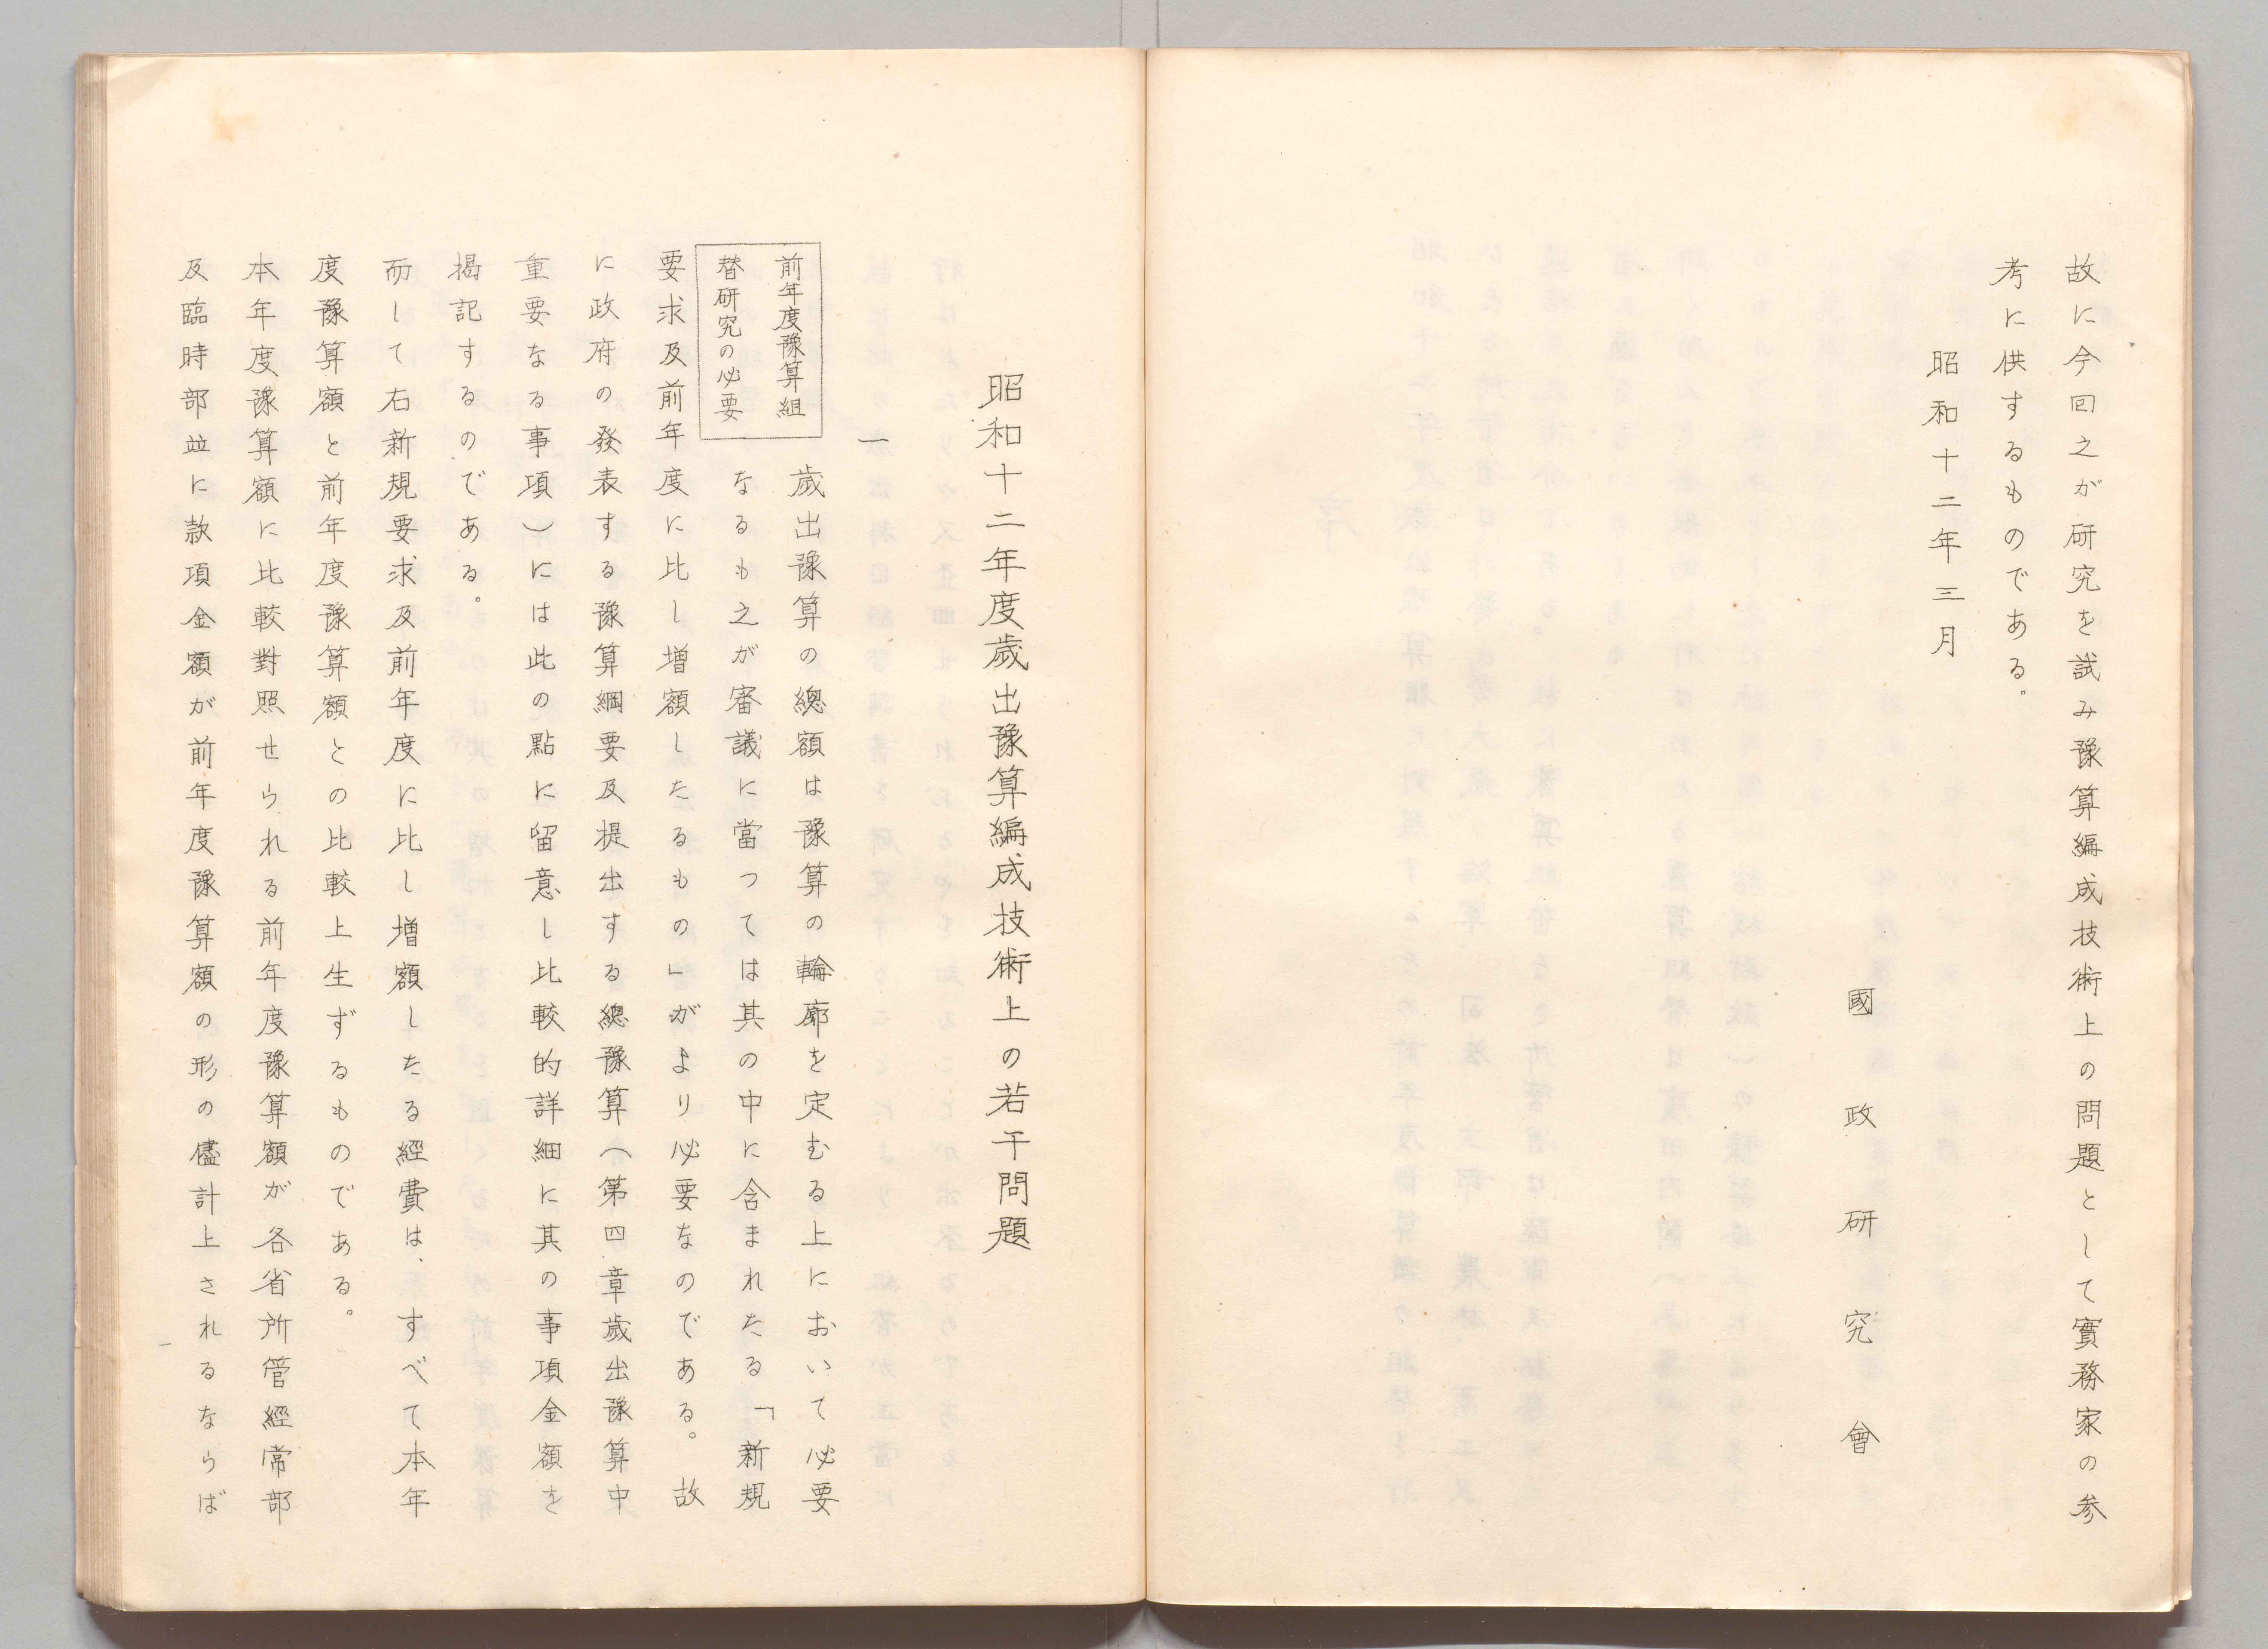 故に今回之が研究を試み豫算編成技術上の問題として實務家の参
考に供するものである。
昭和十二年三月
國政研究會
昭和十二年度歳出豫算編成技術上の若干問題
一
前年度豫算組
替研究の必要
歳出豫算の總額は豫算の輪廓を定むる上において必要
なるも之が審議に當つては其の中に含まれたる「新規
要求及前年度に比し増額したるもの」がより必要なのである。故
に政府の發表する豫算綱要及提出する總豫算（第四章歳出豫算中
重要なる事項）には此の點に留意し比較的詳細に其の事項金額を
掲記するのである。
而して右新規要求及前年度に比し増額したる經費は、すべて本年
度豫算額と前年度豫算額との比較上生ずるものである。
本年度豫算額に比較對照せられる前年度豫算額が各省所管經常部
及臨時部竝に款項金額が前年度豫算額の形の儘計上されるならば
一